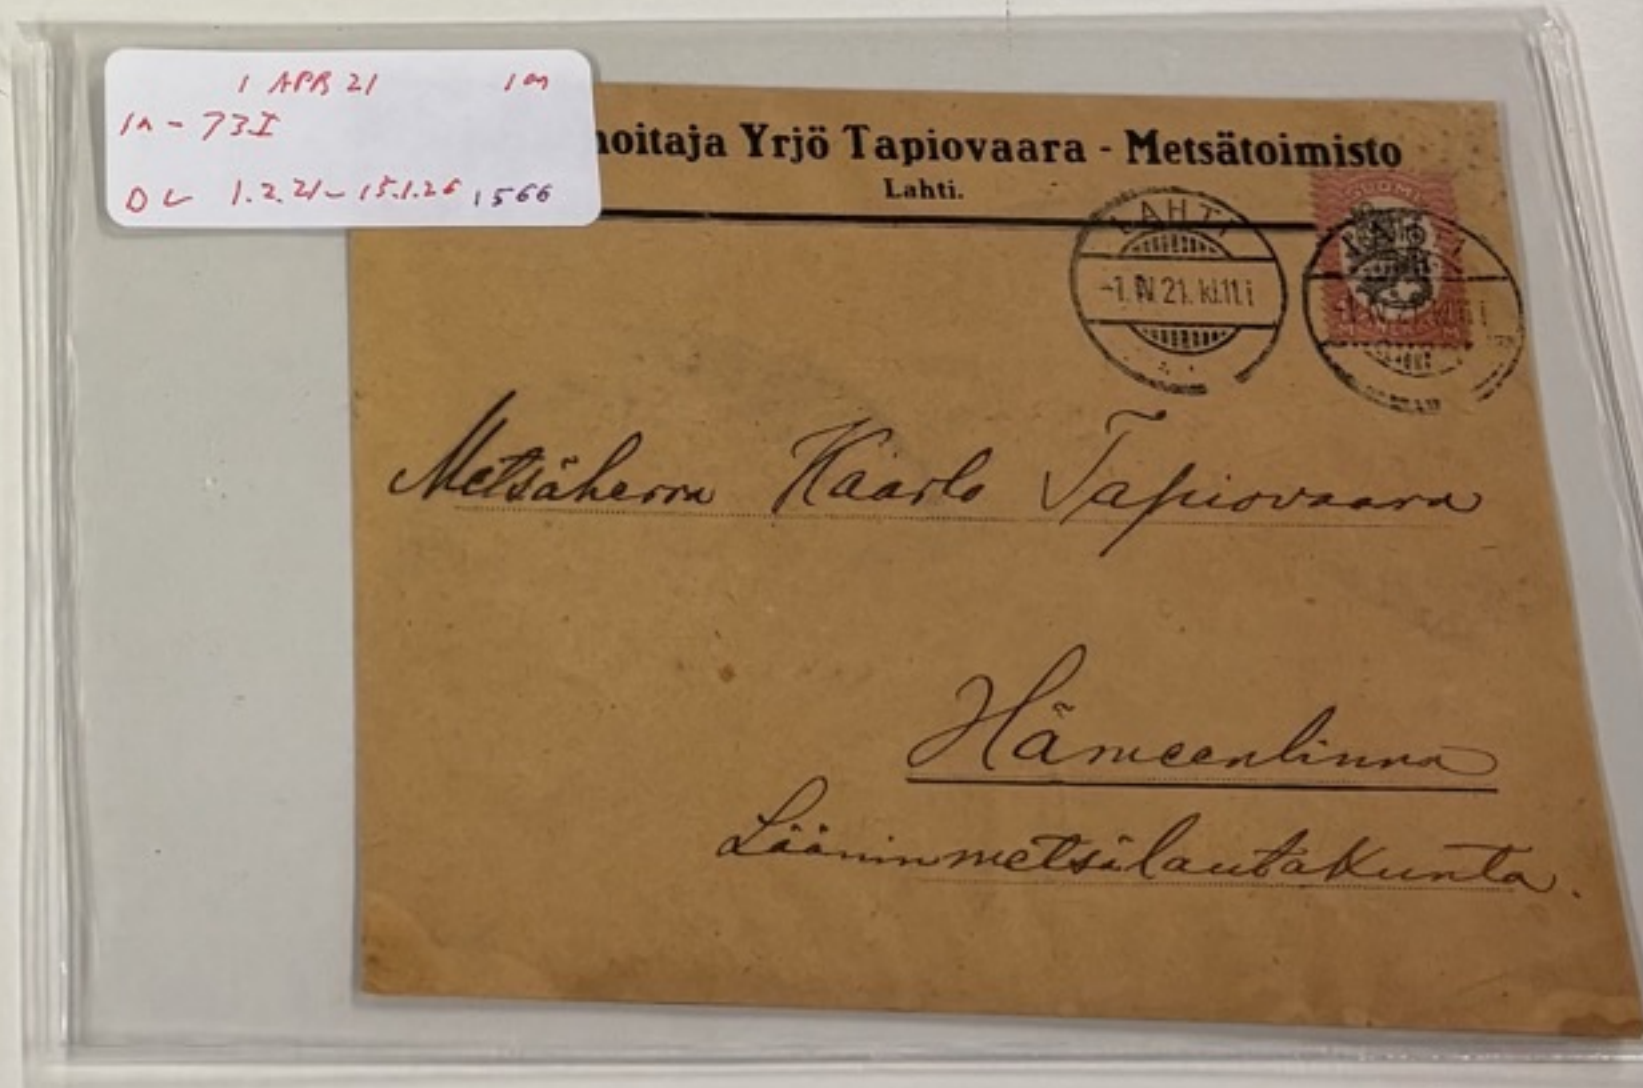 1 APR 21 1m
1m - 73I
DL 1.2.21 - 15.1.26, 1566
hoitaja Yrjö Tapiovaara - Metsätoimisto
Lahti.
SUOMI
LAHTI
-1. IV. 21. kl.11.i
Metsäherra Kaarlo Tapiovaara
Hämeenlinna
Lääninmetsälautakunta.